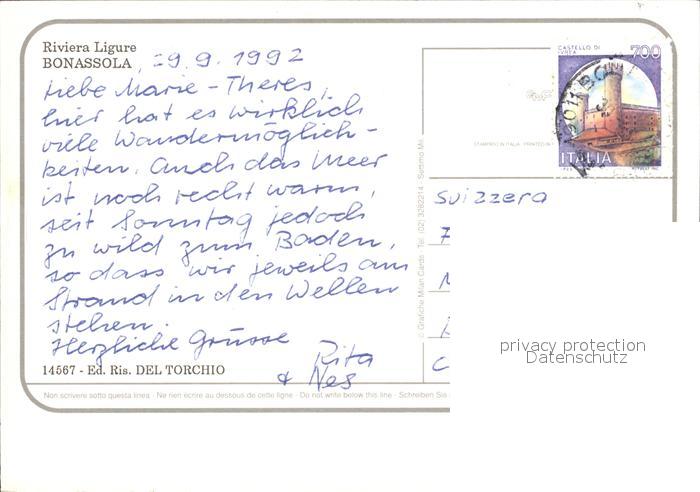 Riviera Ligure
BONASSOLA, 29.9.1992
Liebe Marie-Theres,
hier hat es wirklich
viele Wandermöglich-
keiten. Auch das Meer
ist noch recht warm,
seit Sonntag jedoch
zu wild zum Baden,
so dass wir jeweils am
Strand in den Wellen
stehen.
Herzliche Grüsse
Rita
& Nes
14567 - Ed. Ris. DEL TORCHIO
Non scrivere sotto questa linea - Ne rien écrire au dessous de cette ligne - Do not write below this line - Schreiben Sie
© Grafiche Milan Cards Tel. (02) 3082214 - Sedimo Mi
STAMPATO IN ITALIA PRINTED IN
CASTELLO DI
IVREA
700
ITALIA
Svizzera
7
C
privacy protection
Datenschutz